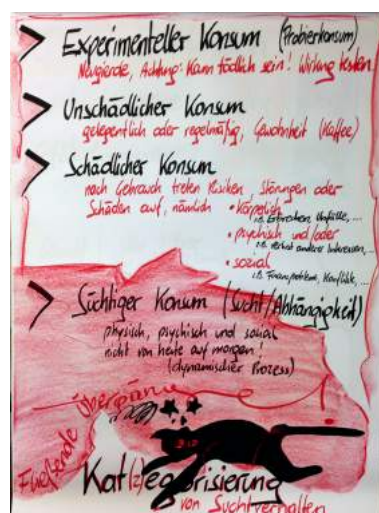 Experimenteller Konsum (Probierkonsum)
Neugierde, Achtung: Kann tödlich sein! Wirkung testen
Unschädlicher Konsum
gelegentlich oder regelmäßig, Gewohnheit (Kaffee)
Schädlicher Konsum
nach Gebrauch treten Risiken, Störungen oder
Schäden auf, nämlich • körperlich
z.B. Erbrechen, Unfälle,...
• psychisch und/oder
z.B. Verlust anderer Interessen,...
• sozial
z.B. Finanzprobleme, Konflikte,...
Süchtiger Konsum (Sucht/Abhängigkeit)
physisch, psychisch und sozial
nicht von heute auf morgen!
(dynamischer Prozess)
Fließende Übergänge
Kat(z)egorisierung
von Suchtverhalten